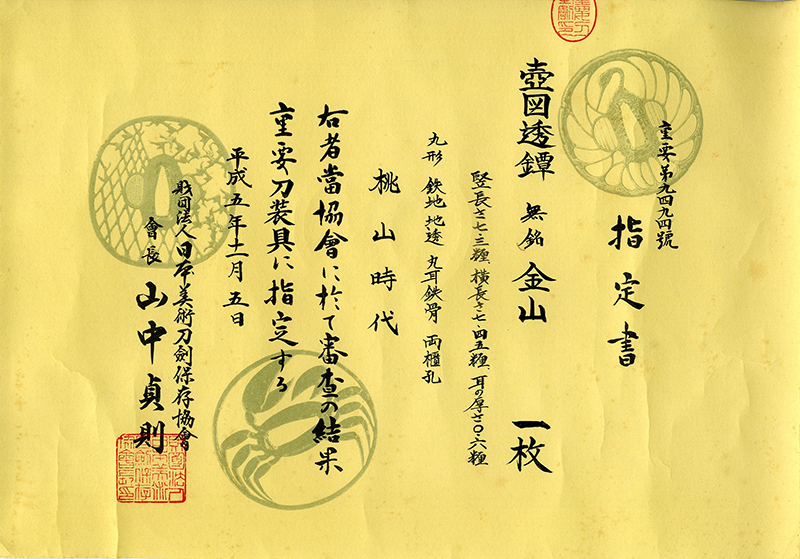 重要第九四九四號
指定書
壺図透鐔 無銘 金山 一枚
竪長さ七・三糎、横長さ七・四五糎、耳の厚さ〇・六糎
九形 鉄地 地透 丸耳鉄骨 両櫃孔
桃山時代
右者當協會に於て審査の結果
重要刀装具に指定する
平成五年十一月五日
財団法人日本美術刀劍保存協會
會長 山中貞則